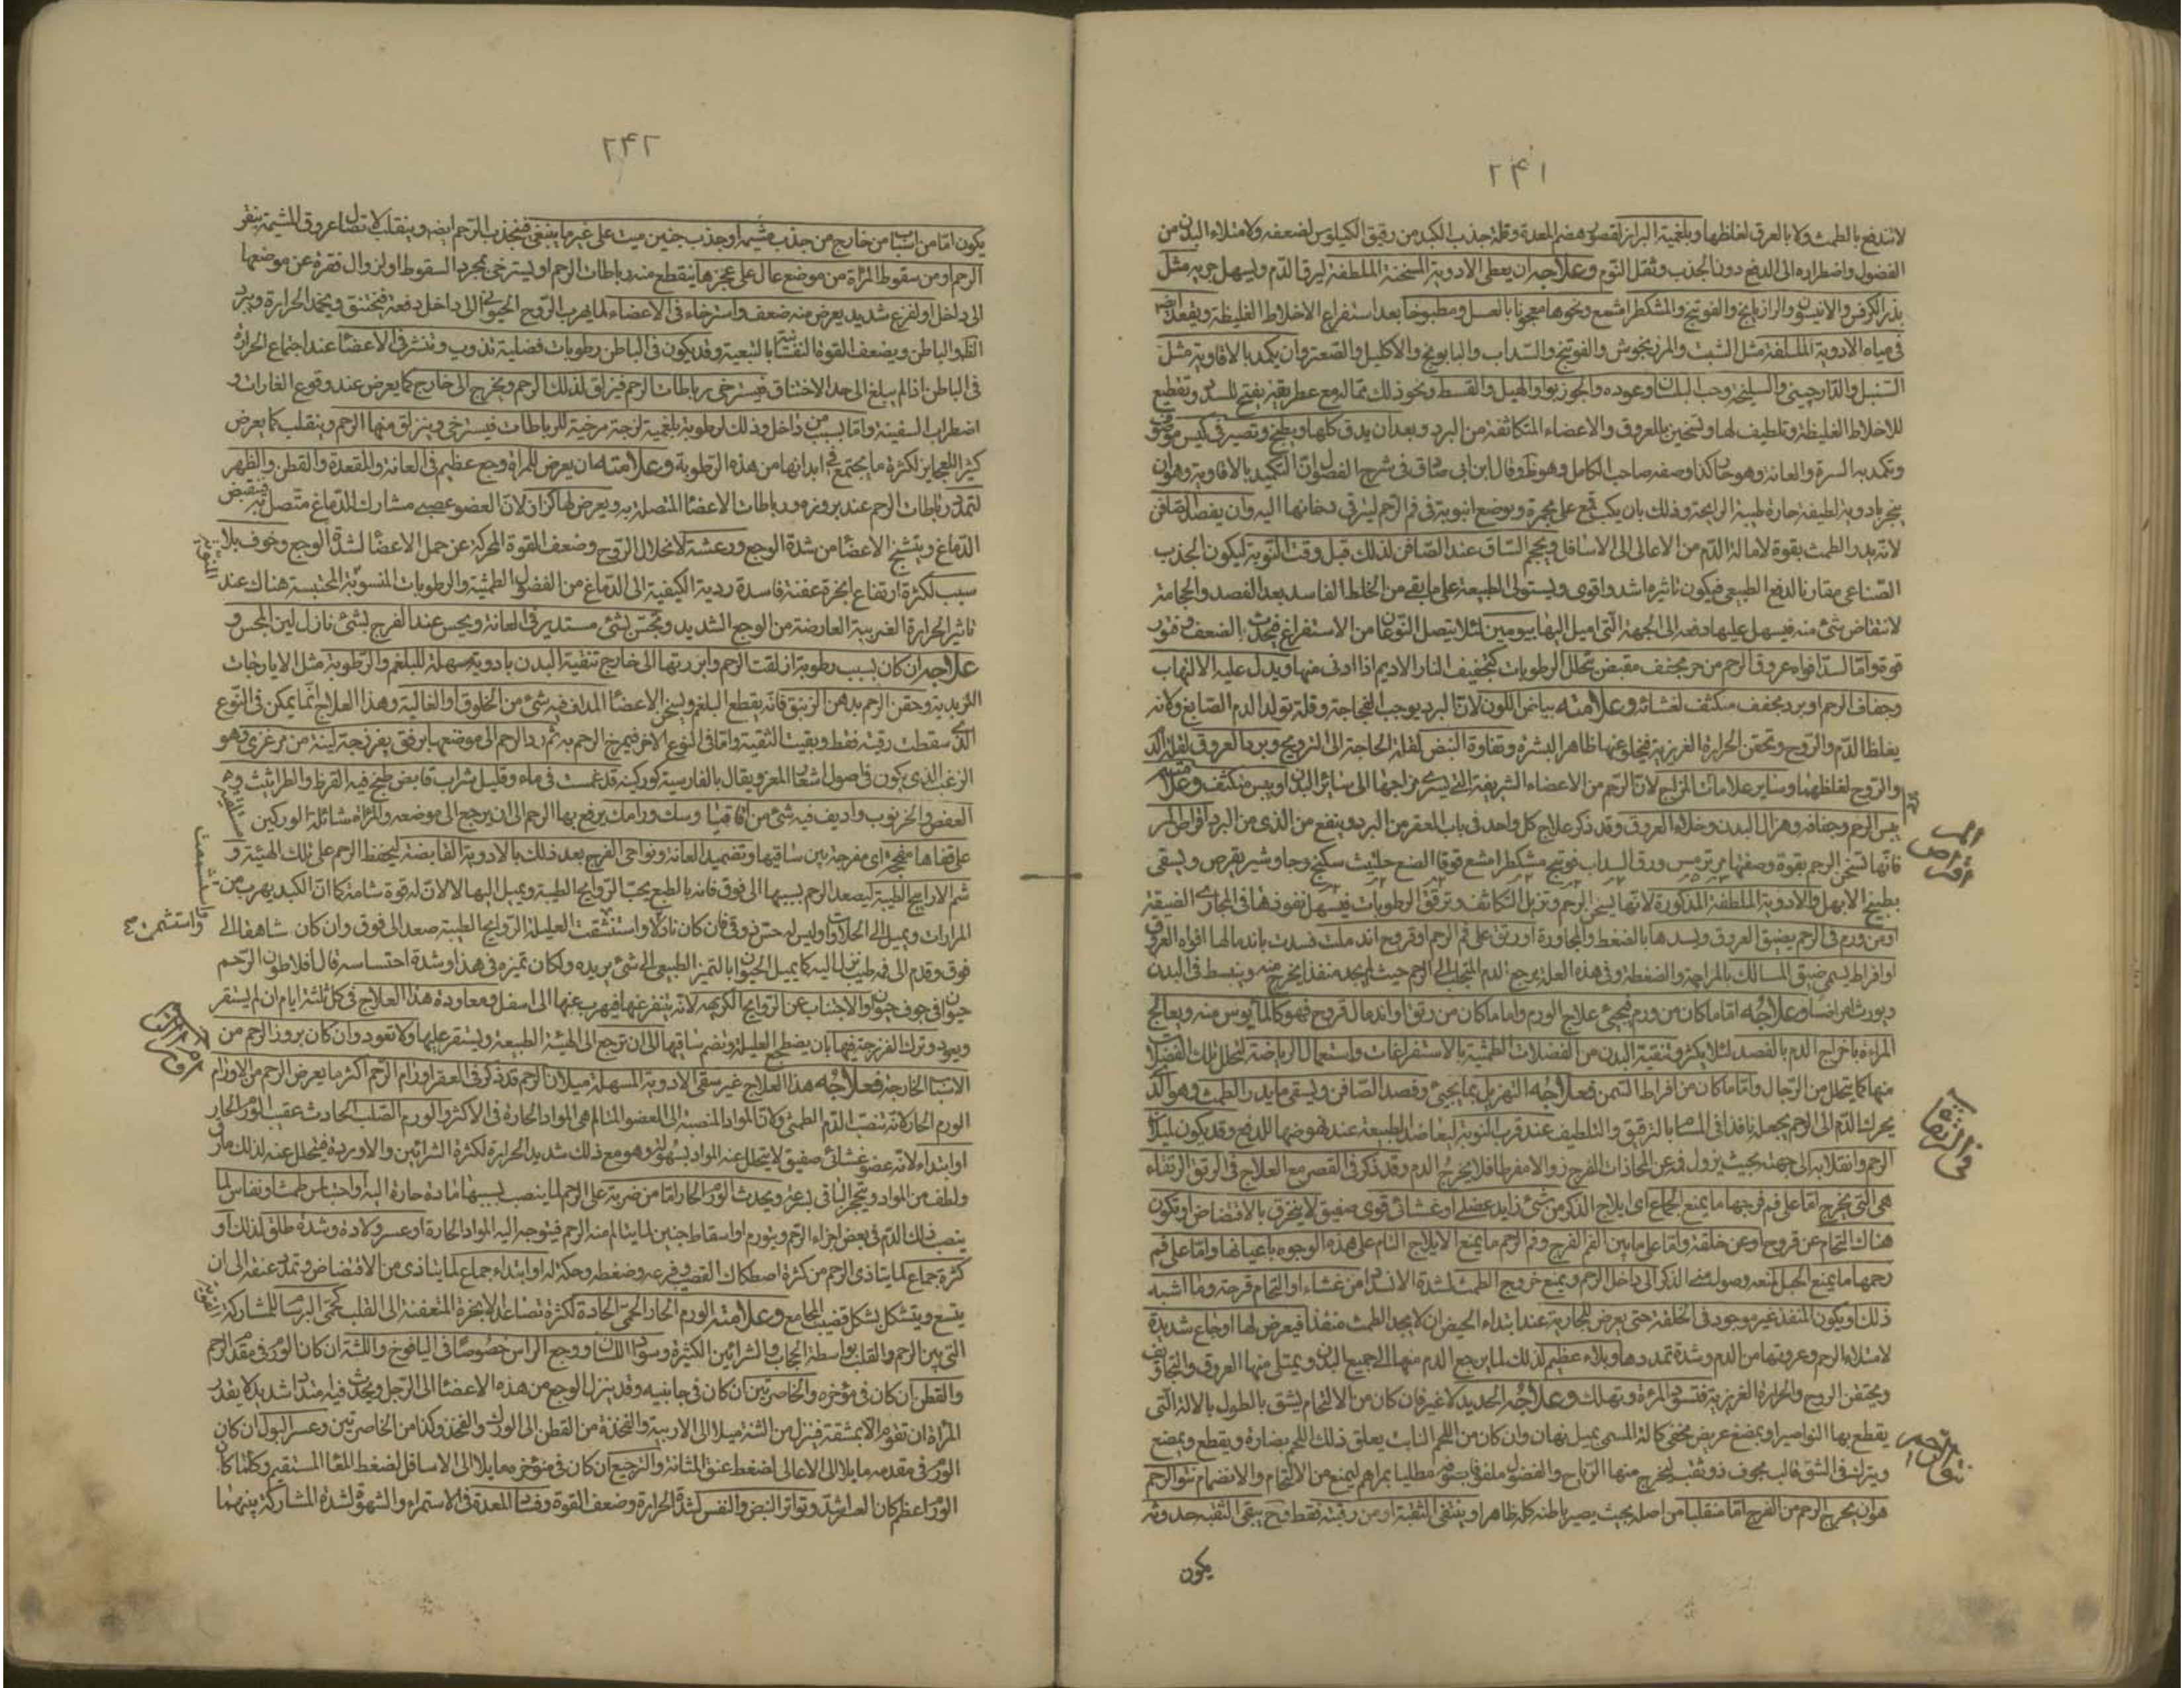 ٢٤١
لاتندفع بالطمث ولا بالعرق لغلظها وبلغمية البراز لقصور هضم المعدة وقلة جذب الكبد من رقيق الكيلوس لضعفه ولامتلاء البدن من
الفضول واضطراره الى الدفع دون الجذب وثقل النوم وعلاجه ان يعطى الادوية المسخنة الملطفة ليرق الدم ويسهل جريه مثل
بذر الكرفس والانيسون والرازيانج والفوتنج والمشكطرامشيع ونحوها معجونا بالعسل ومطبوخا بعد استفراغ الاخلاط الغليظة ويقعد ايضا
فى مياه الادوية الملطفة مثل الشبت والمرزنجوش والفوتنج والسداب والبابونج والاكليل والصعتر وان يكمد بالافاويه مثل
السنبل والدارچينى والسليخة وحب البلسان وعوده والجوزبوا والهيل والقسط ونحو ذلك مما له مع عطريته تفتيح للسدد وتقطيع
للاخلاط الغليظة وتلطيف لها وتسخين للعروق والاعضاء المتكاثفة من البرد وبعد ان يدق كلها ويطبخ وتصير فى كيس
وتكمد به السرة والعانة وهو حار كذا وصفه صاحب الكامل وهو ظ وقال ابن ابى صادق فى شرح الفصول ان التكميد بالافاويه وهو ان
يبخر بادوية لطيفة حارة طيبة الرايحة وذلك بان يكب قمع على مجمرة ويوضع انبوبته فى فم الرحم ليترقى دخانها اليه وان يفصد الصافن
لانه يدر الطمث بقوة لامالة الدم من الاعالى الى الاسافل ويحجم الساق عند الصافن لذلك قبل وقت النوبة ليكون الجذب
الصناعى مقارنا لدفع الطبيعى فيكون تاثيره اشد واقوى ويستولى الطبيعة على ما بقى من الخلط الفاسد بعد الفصد والحجامة
لانتقاض شئ منه فيسهل عليها دفعه الى الجهة التى اميل اليها بيومين لئلا يتصل النوعان من الاستفراغ فيحدث الضعف وخور
قوة واما السد افواه عروق الرحم من حر مجفف مقبض يتحلل الرطوبات كتجفيف النار الاديم اذا ادنى منها ويدل عليه الالتهاب
وجفاف الرحم او برد مجفف متكثف لغشائه وعلامته بياض اللون لان البرد يوجب الفجاجة وقلة تولد الدم الصابغ ولانه
يغلظ الدم والروح وتحقن الحرارة الغريزية فيخلو عنها ظاهر البشرة وتفاوة النبض لقلة الحاجة الى الترويح وبرد العروق لقلة الدم
والروح لغلظهما وساير علامات المزاج لان الرحم من الاعضاء الشريفة التى يسرى مزاجها الى سائر البدن او يبس متكثف وعلامته
يبس الرحم وجفافه وهزال البدن وخلاء العروق وقد ذكر علاج كل واحد فى باب العقر من البرد وينفع من الذى من البرد اقراص المر
فانها تسخن الرحم بقوة وصفتها مر ترمس ورق السداب فوتنج مشكطرامشيع فوة الصبغ حلتيث سكبينج وجاوشير يقرص ويسقى
بطبيخ الابهل والادوية الملطفة المذكورة لانها يسخن الرحم وتزيل التكاثف وترقق الرطوبات فيسهل نفوذها فى المجارى الضيقة
او من ورم فى الرحم يضيق العروق ويسدها بالضغط والمجاورة او رتق على فم الرحم او قروح اندملت فسدت باندمالها افواه العروق
او افراط سمن ضيق المسالك بالمزاحمة والضغطة وفى هذه العلة يرجع الدم المتجلب الى الرحم حيث لم يجد منفذا يخرج منه وينبسط فى البدن
ويورث امراضا وعلاجه اما ما كان من ورم فيجئ علاج الورم واما ما كان من رتق او اندمال قروح فهو كالمأيوس منه ويعالج
المراءة باخراج الدم بالفصد لئلا يكثر وتنقية البدن من الفضلات الطمثية بالاستفراغات واستعمال الرياضة لتحلل تلك الفضول
منها كما يتحلل من الرجال واما ما كان من افراط السمن فعلاجه التهزيل بما يجئ وفصد الصافن ويسقى ما يدر الطمث وهو الذى
يحرك الدم الى الرحم يجعله نافذا فى المسام بالترقيق والتلطيف عند قرب النوبة ليعاضد الطبيعة عند نهوضها للدفع وقد يكون لميلان
الرحم وانقلابه الى جهة بحيث يزول فمه عن المحاذات للفرج زوالا مفرطا فلا يخرج الدم وقد ذكر فى القصر مع العلاج فى الرتق الرتقاء
هى التى يخرج اما على فم فرجها ما يمنع الجماع اى ايلاج الذكر من شئ زايد عضلى او غشائى قوى صفيق لا ينخرق بالافتضاض او يكون
هناك التحام عن قروح او عن خلقة واما على ما بين الفم الفرج وفم الرحم ما يمنع الايلاج التام على هذه الوجوه باعيانها واما على فم
رحمها ما يمنع الحبل لمنعه وصول منى الذكر الى داخل الرحم ويمنع خروج الطمث لشدة الانسداد من غشاء او التحام قرحة وما اشبه
ذلك او يكون المنفذ غير موجود فى الخلقة حتى يعرض للجارية عند ابتداء الحيض ان لا يجد الطمث منفذا فيعرض لها اوجاع شديدة
لامتلاء الرحم وعروقها من الدم وشدة تمددها وبلاء عظيم لذلك لما يرجع الدم منها الى جميع البدن ويمتلى منها العروق والتجاويف
ويختنق الروح والحرارة الغريزية فتسود المرءة وتهلك وعلاجه الحديد لا غير فان كان من الالتحام يشق بالطول بالالة التى
يقطع بها النواصير او بمبضع عريض مخفى كالة المسمى بميل نهان وان كان من اللحم النابت يعلق ذلك اللحم بصنارة ويقطع ويمبضع
ويترك فى الشق قالب مجوف ذو ثقب ليخرج منها الرياح والفضول ملفوفا بصوفه مطليا بمراهم ليمنع من الالتحام والانضمام نتوالرحم
هو ان يخرج الرحم من الفرج اما منقلبا من اصله بحيث يصير باطنه كله ظاهرا وينتفى الثقبة او من رقبته فقط وح يبقى الثقبه حدوثه
يكون
اقراص المر
فى الرتقاء
نتوالرحم
٢٤٢
يكون اما من اسباب من خارج من جذب مشيمة او جذب جنين ميت على غير ما ينبغى فينجذب الرحم ايضه وينقلب لاتصال عروق المشيمة بنقر
الرحم او من سقوط المراة من موضع عال على عجزها ينقطع منه رباطات الرحم او يسترخى بمجرد السقوط او لزوال فقرة عن موضعها
الى داخل او لفزع شديد يعرض منه ضعف واسترخاء فى الاعضاء لما يهرب الروح الحيوانى الى داخل دفعة فيختنق ويخمد الحرارة ويبرد
الظاهر والباطن ويضعف القوة النفسانية بالتبعية وقد يكون فى الباطن رطوبات فضلية تذوب وتنشر فى الاعضاء عند اجتماع الحرارة
فى الباطن اذا لم يبلغ الى حد الاختناق فيسترخى رباطات الرحم فيزلق لذلك الرحم ويخرج الى خارج كما يعرض عند وقوع الغارات و
اضطراب السفينة واما بسبب من داخل وذلك لرطوبة بلغمية لزجة مرخية للرباطات فيسترخى وينزلق منها الرحم وينقلب كما يعرض
كثيرا للعجايز لكثرة ما يجتمع فى ابدانها من هذه الرطوبة وعلامته ان يعرض للمراة وجع عظيم فى العانة والمقعدة والقطن والظهر
لتمدد رباطات الرحم عند بروزه ورباطات الاعضاء المتصلة به ويعرض لها كزاز لان العضو عصبى مشارك الدماغ متصل به فينقبض
الدماغ ويتشنج الاعضاء من شدة الوجع ورعشة لانحلال الروح وضعف القوة المحركة عن حمل الاعضاء لشدة الوجع وخوف بلا
سبب لكثرة ارتفاع ابخرة عفنة فاسدة ردية الكيفية الى الدماغ من الفضول الطمثية والرطوبات المنوية المحتبسة هناك عند
تاثير الحرارة الغريبة العارضة من الوجع الشديد ويحس بشئ مستدير فى العانة ويحس عند الفرج بشئ نازل لين المجس و
علاجه ان كان بسبب رطوبة ازلقت الرحم وابرزتها الى خارج تنقية البدن بادوية مسهلة للبلغم والرطوبة مثل الايارجات
وحقن الرحم بدهن الزنبق فانه يقطع البلغم ويسخن الاعضاء المداف فيه شئ من الخلوق او الغالية وهذا العلاج انما يمكن فى النوع
الذى سقطت رقبته فقط وبقيت الثقبة واما فى النوع الاخر فيمرخ الرحم به ثم رد الرحم الى موضعها برفق بفرزجة لينة من مرعزى وهو
الزغب الذى يكون فى اصول اشعار المعز ويقال بالفارسية كوركينه قد غمست فى ماء وقليل شراب قابض طبخ فيه القرظ والطراثيث و
العفص والخرنوب واديف فيه شئ من اقاقيا وسك ورامك يرفع بها الرحم الى ان يرجع الى موضعه والمراة شائلة الوركين
على قفاها منفحجة اى مفرجة بين ساقيها وتضميد العانة ونواحى الفرج بعد ذلك بالادوية القابضة ليحفظ الرحم على تلك الهيئة و
شم الاراييح الطيبة ليصعد الرحم بسببها الى فوق فانه بالطبع يحب الروايح الطيبة ويميل اليها لا لان له قوة شامة كما ان الكبد يهرب من
المرارات ويميل الى الحلاوات وليس له حس ذوقى فان كان نازلا واستنشقت العليلة الروايح الطيبة صعد الى فوق وان كان شاهقا الى
فوق وقدم الى فمه طيب نزل اليه كما يميل الحيوان بالتميز الطبيعى الى شئ يريده ولمكان تميزه فى هذا وشدة احتساسه قال افلاطون الرحم
حيوان فى جوف حيوان والاجتناب عن الروايح الكريهه لانه يتنفر عنها فيهرب عنها الى اسفل ومعاودة هذا العلاج فى كل ثلثة ايام ان لم يستقر
ويعود وترك الفرزجة فيها بان يضطجع العليلة وتضم ساقيها الى ان ترجع الى الهيئة الطبيعة ويستقر عليها ولا تعود وان كان بروز الرحم من
الاسباب الخارجة فعلاجه هذا العلاج غير سقى الادوية المسهلة ميلان الرحم قد ذكر فى العقر اورام الرحم اكثر ما يعرض الرحم من الاورام
الورم الحار لانه تنصب الدم الطمثى ولان المواد المنصبة الى العضو المتالم هى المواد الحارة فى الاكثر والورم الصلب الحادث عقيب الورم الحار
او ابتداء لانه عضو غشائى صفيق لا يتحلل عنه المواد بسهولة وهو مع ذلك شديد الحرارة لكثرة الشرائين والاوردة فيتحلل عنه لذلك مارق
ولطف من المواد ويتحجر الباقى بسرعة ويحدث الورم الحار اما من ضربة على الرحم لما ينصب بسببها مادة حارة اليه او احتباس طمث او نفاس لما
ينصب ذلك الدم فى بعض اجزاء الرحم ويتورم او اسقاط جنين لما يتالم منه الرحم فيتوجه اليه المواد الحارة او عسر ولادة وشدة طلق لذلك او
كثرة جماع لما يتاذى الرحم من كثرة اصطكاك القضيب وقرعه وضغطه وحكة له او ابتداء جماع لما يتاذى من الافتضاض وتمدد عنقه الى ان
يتسع ويتشكل بشكل قضيب المجامع وعلامته الورم الحار الحمى الحادة لكثرة تصاعد الابخرة المتعفنة الى القلب كحمى البرسام للمشاركة
التى بين الرحم والقلب بواسطة الحجاب والشرائين الكثيرة وسواد اللسان ووجع الراس خصوصا فى اليافوخ واللثة ان كان الورم فى مقدم الرحم
والقطن ان كان فى مؤخره والخاصرتين ان كان فى جانبيه وقد ينزل الوجع من هذه الاعضاء الى الرجل ويحدث فيه مددا شديدا لا يقدر
المراة ان تقوم الا بمشقة فينزل من الثنة ميلا الى الاربية والفخذة من القطن الى الورك والفخذ وكذا من الخاصرتين وعسر البول ان كان
الورم فى مقدمه مايلا الى الاعالى لضغط عنق المثانة والترجيع ان كان فى مؤخره مايلا الى الاسافل لضغط المعا المستقيم وكلما كان
الورم اعظم كان العسر اشد وتواتر النبض والنفس لشدة الحرارة وضعف القوة وفساد المعدة فى الاستمراء والشهوة لشدة المشاركة بينهما
مستلقية
واستشمت
اورام الرحم